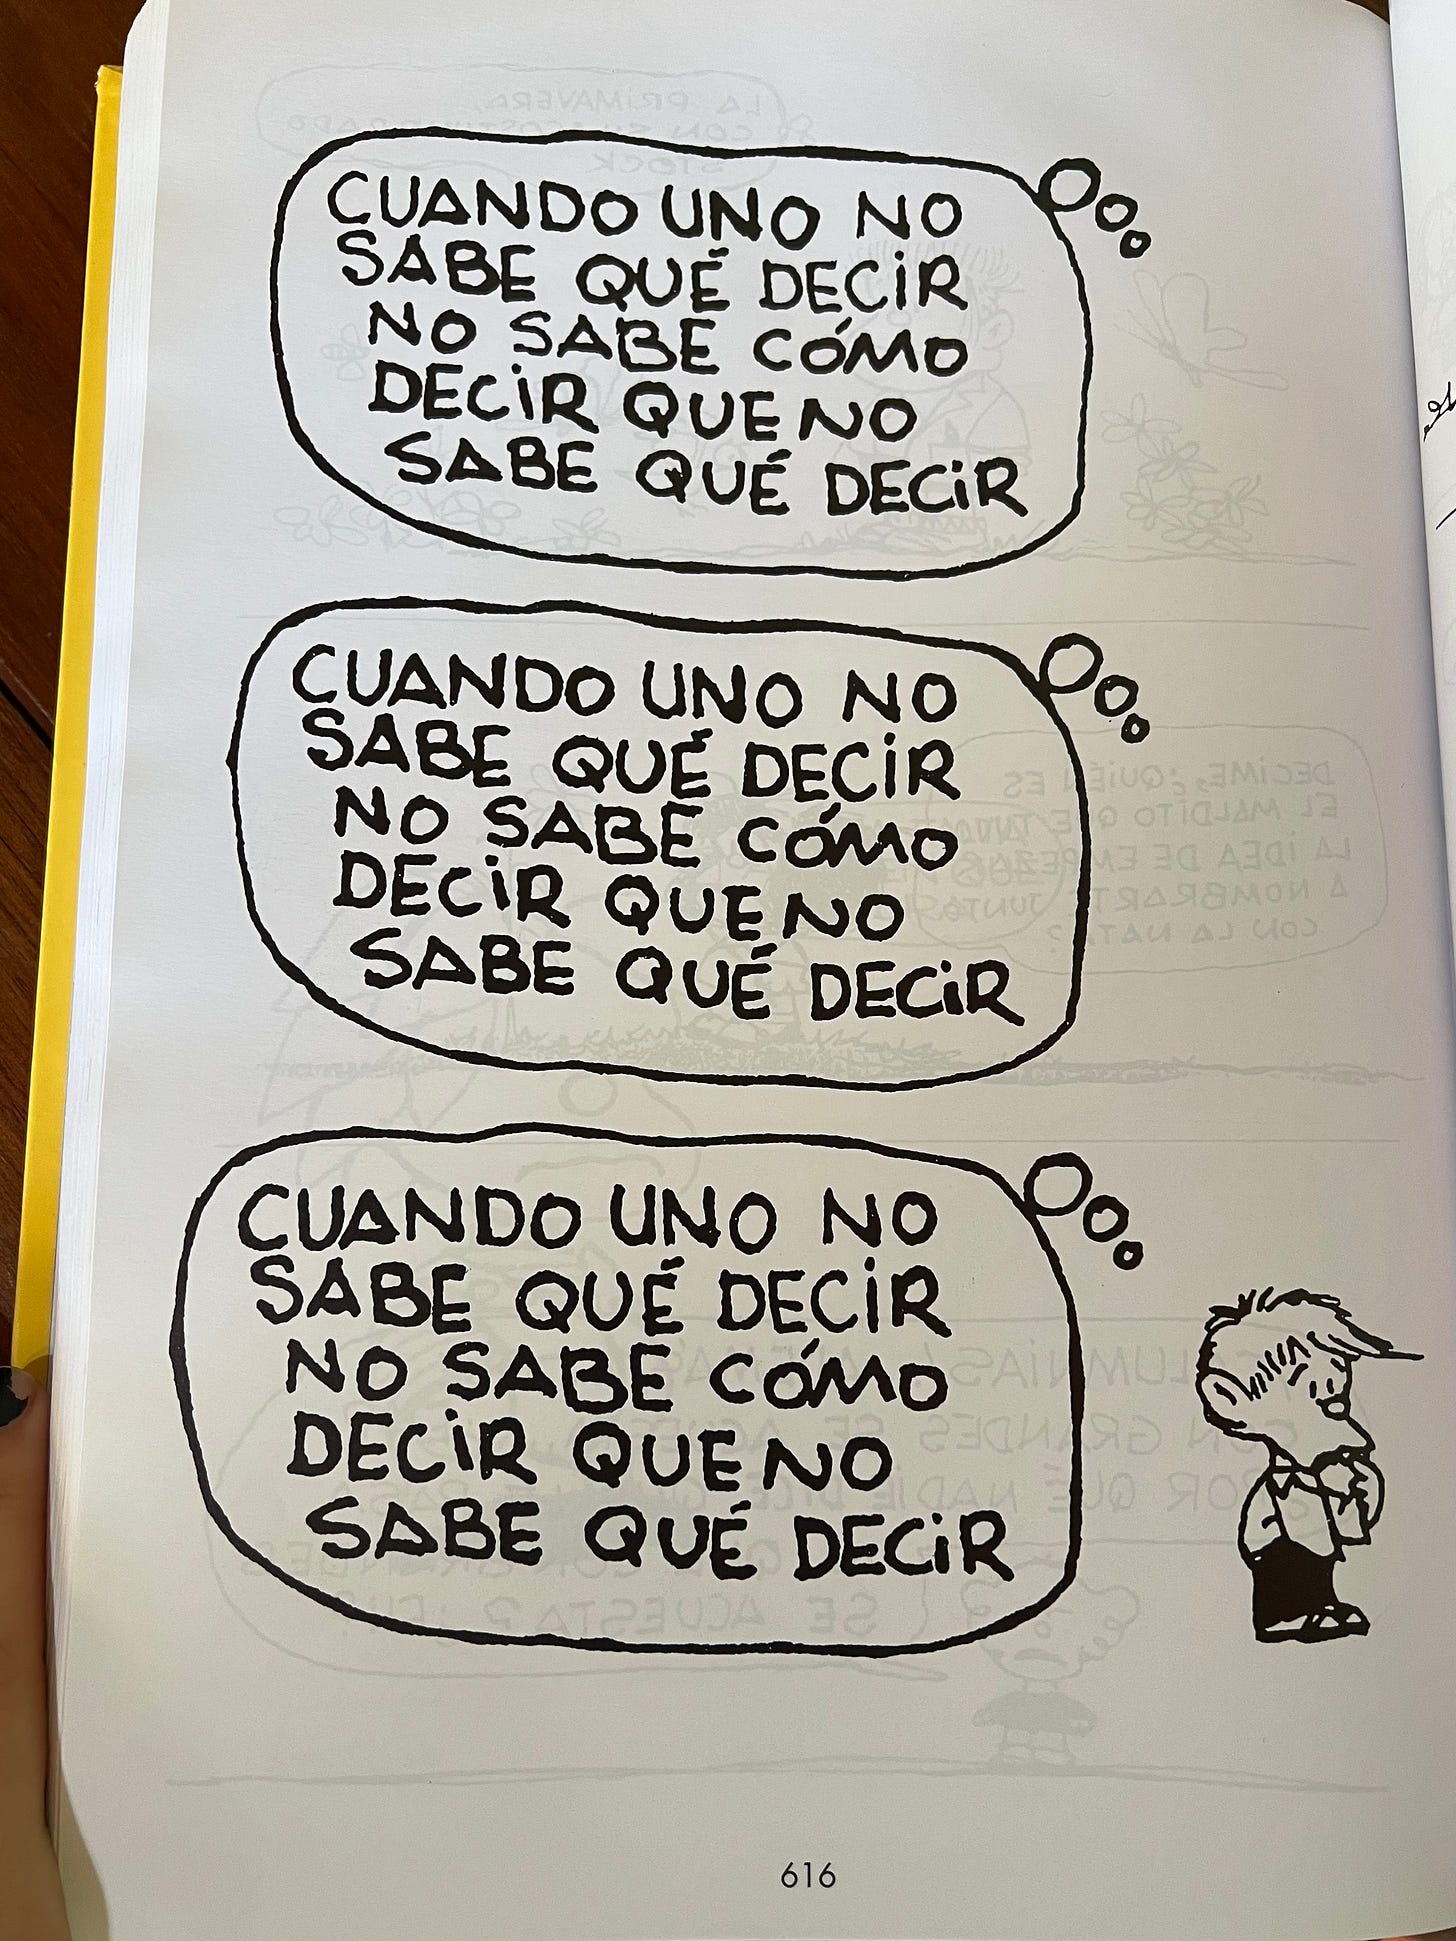 CUANDO UNO NO
SABE QUÉ DECIR
NO SABE CÓMO
DECIR QUE NO
SABE QUÉ DECIR
CUANDO UNO NO
SABE QUÉ DECIR
NO SABE CÓMO
DECIR QUE NO
SABE QUÉ DECIR
CUANDO UNO NO
SABE QUÉ DECIR
NO SABE CÓMO
DECIR QUE NO
SABE QUÉ DECIR
616